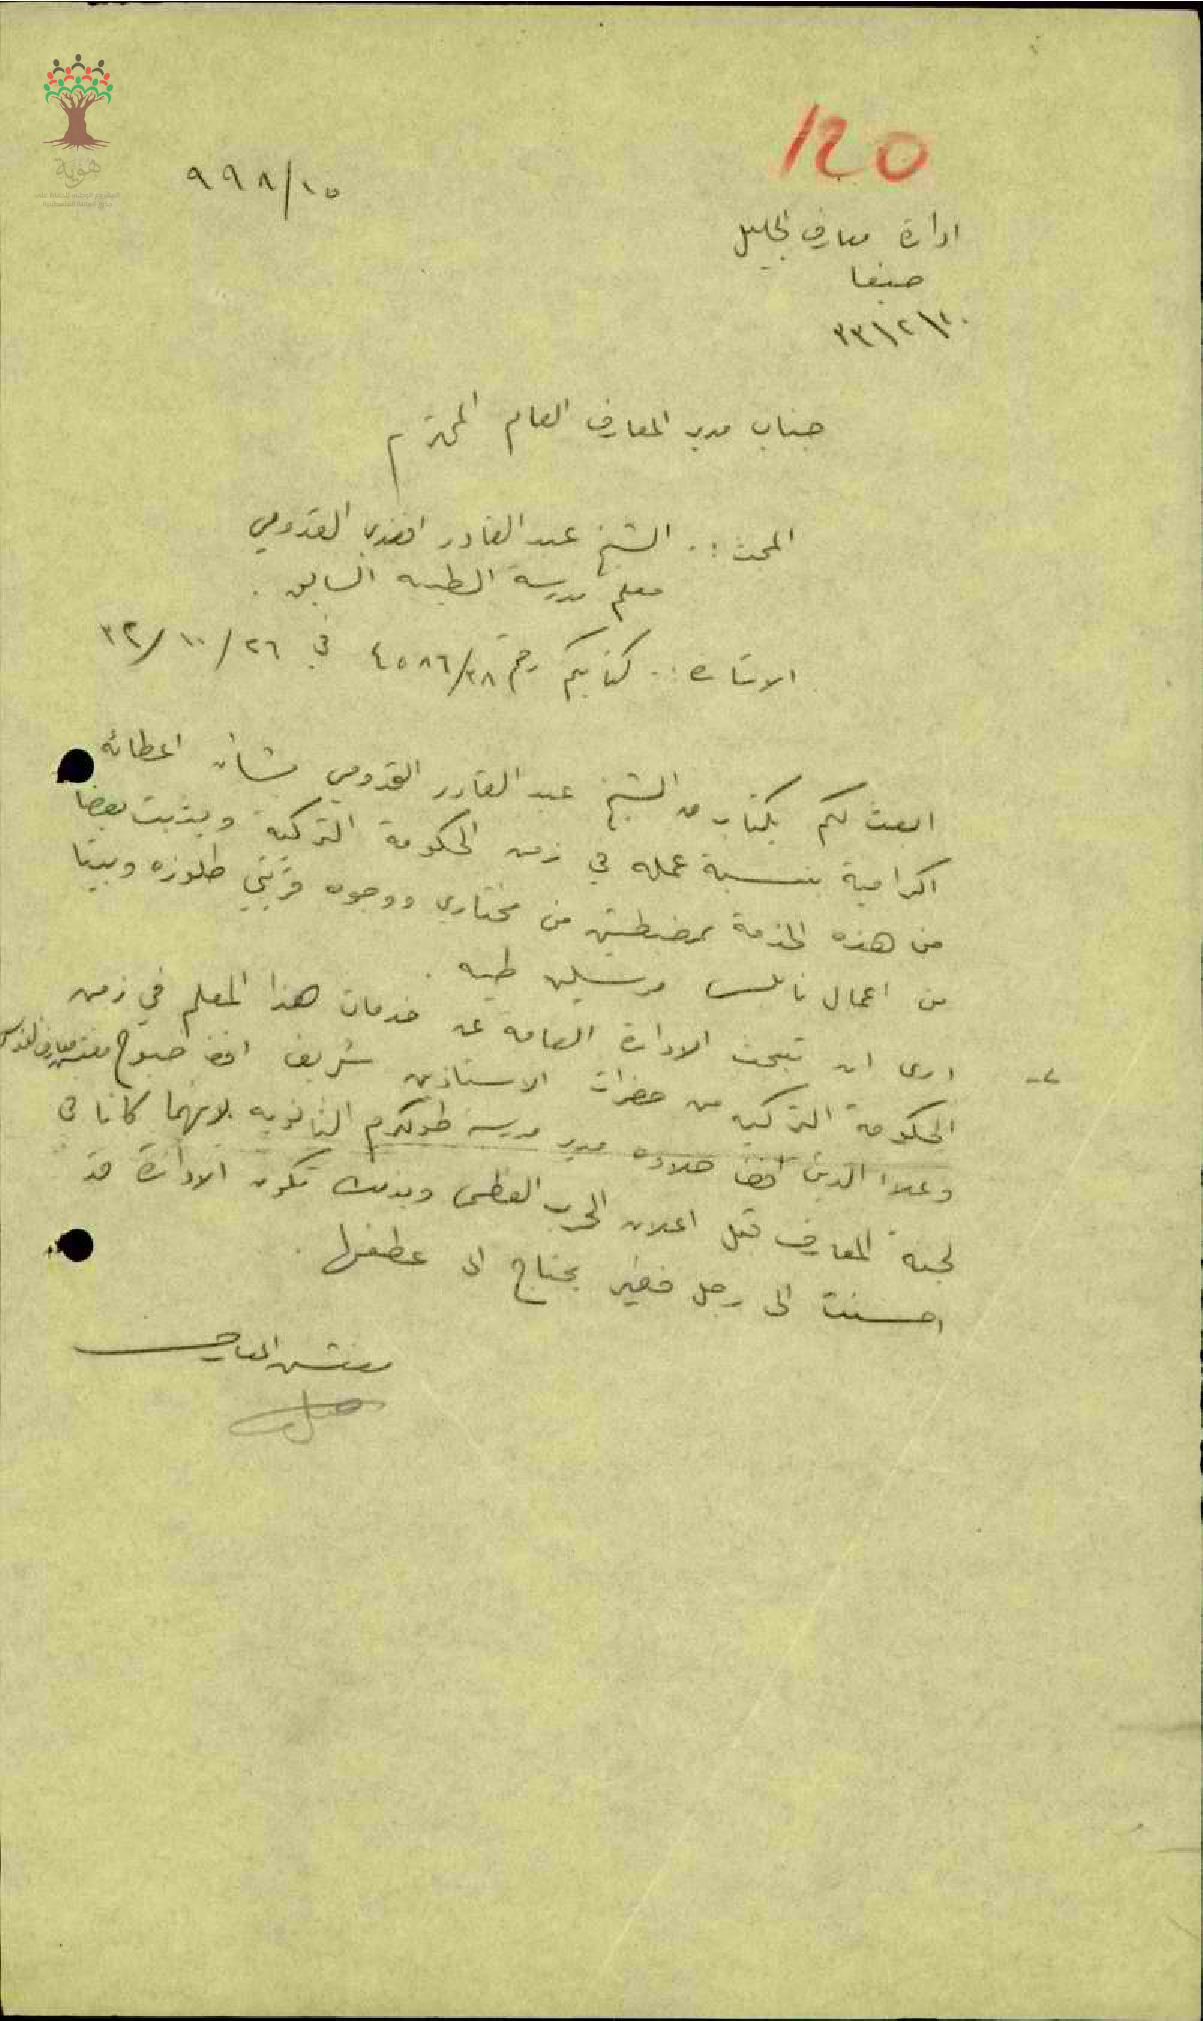 هوية
120
٩٩٨/١٥
ادارة معارف الجليل
حيفا
٣٣/٢/٢٠
جناب مدير المعارف العام المحترم
البحث :. الشيخ عبد القادر افندي القدومي
معلم مدرسة الطيبه السابق .
الاشارة :. كتابكم رقم ٤٥٨٦/٢٨ في ٢٦/١٠/٣٢
ابعث لكم بكتاب من الشيخ عبد القادر القدومي بشان اعطائه
اكرامية بنسبة عمله في زمن الحكومة التركية ويثبت بعضا
من هذه الخدمة بمضبطتين من مختاري ووجوه قريتي طلوزه وبيتا
من اعمال نابلس مرسلين طيه .
٢- ارى ان تبحث الادارة العامة عن خدمات هذا المعلم في زمن
الحكومة التركيه من حضرات الاستاذين شريف افندي صبوح مفتش معارف القدس
وعلاء الدين افندي حلاوه مدير مدرسة طولكرم الثانويه لانهما كانا في
لجنة المعارف قبل اعلان الحرب العظمى وبذلك تكون الادارة قد
احسنت الى رجل فقير يحتاج الى عطفها .
مفتش المعارف